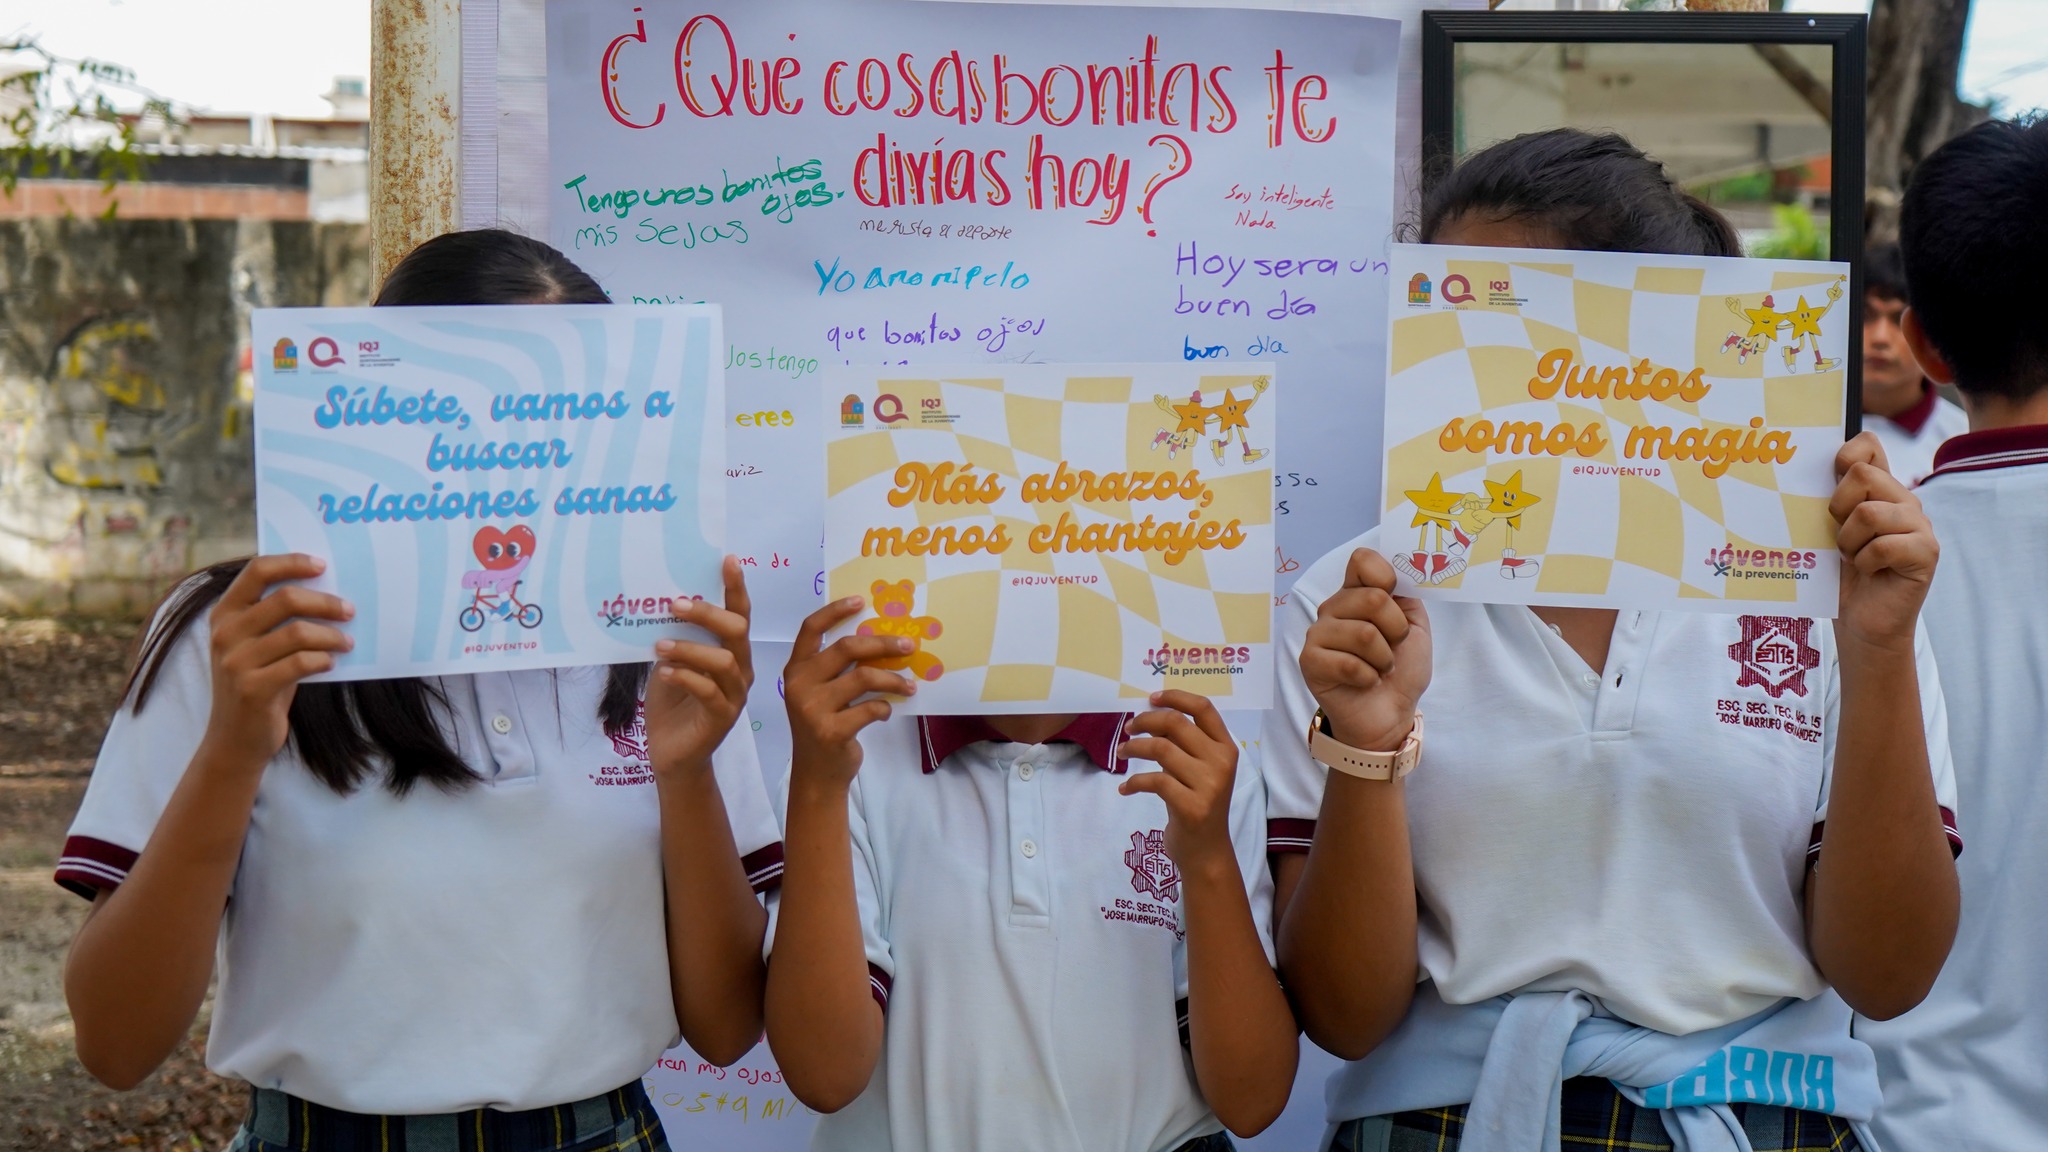 ¿Qué cosas bonitas te
divías hoy?
Tengo unos bonitos
ojos.
mis sejas
me gusta el deporte
Soy inteligente
Nada
Yo amo mi pelo
Hoy sera un
buen día
que bonitos ojos
buen día
eres
ran mis ojos
IQJ
INSTITUTO
QUINTANARROENSE
DE LA JUVENTUD
Súbete, vamos a
buscar
relaciones sanas
@IQJUVENTUD
Jóvenes
x la prevención
IQJ
INSTITUTO
QUINTANARROENSE
DE LA JUVENTUD
Más abrazos,
menos chantajes
@IQJUVENTUD
Jóvenes
x la prevención
IQJ
INSTITUTO
QUINTANARROENSE
DE LA JUVENTUD
Juntos
somos magia
@IQJUVENTUD
Jóvenes
x la prevención
ESC. SEC.
"JOSE MARRUFO
ESC. SEC. TEC.
"JOSE MARRUFO
ESC. SEC. TEC. No. 15
"JOSÉ MARRUFO HERNANDEZ"